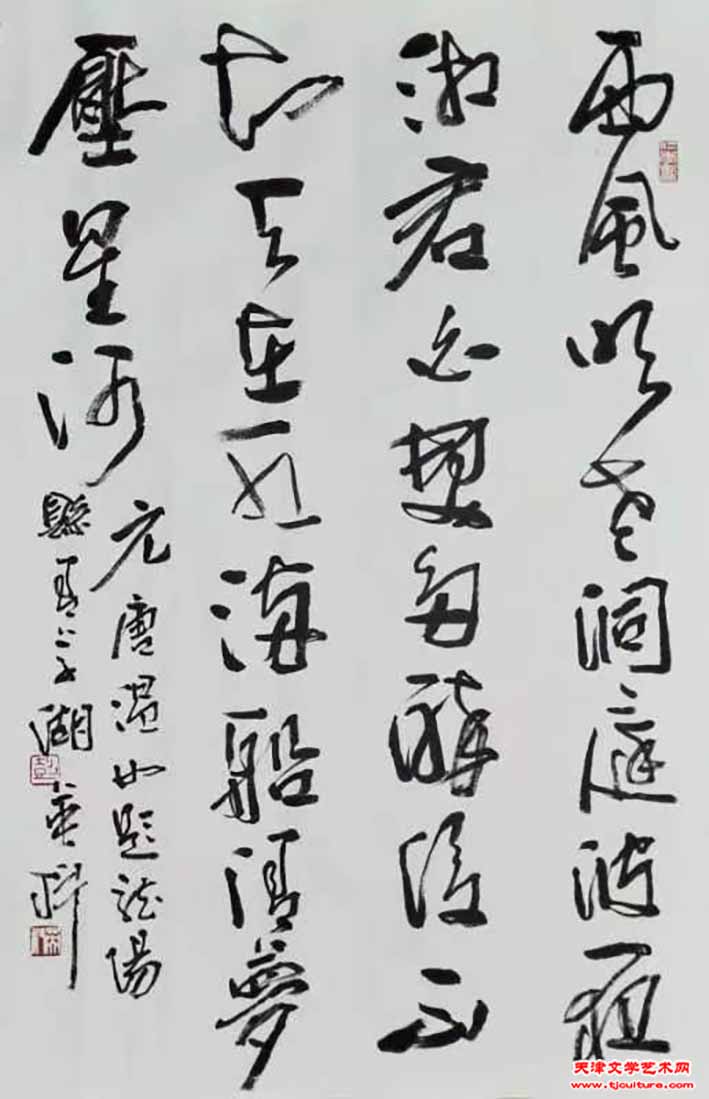 西風吹老洞庭波一夜
湘君白髮多醉後不
知天在水滿船清夢
壓星河
元唐溫如題龍陽
縣青草湖
天津文学艺术网
www.tjculture.com